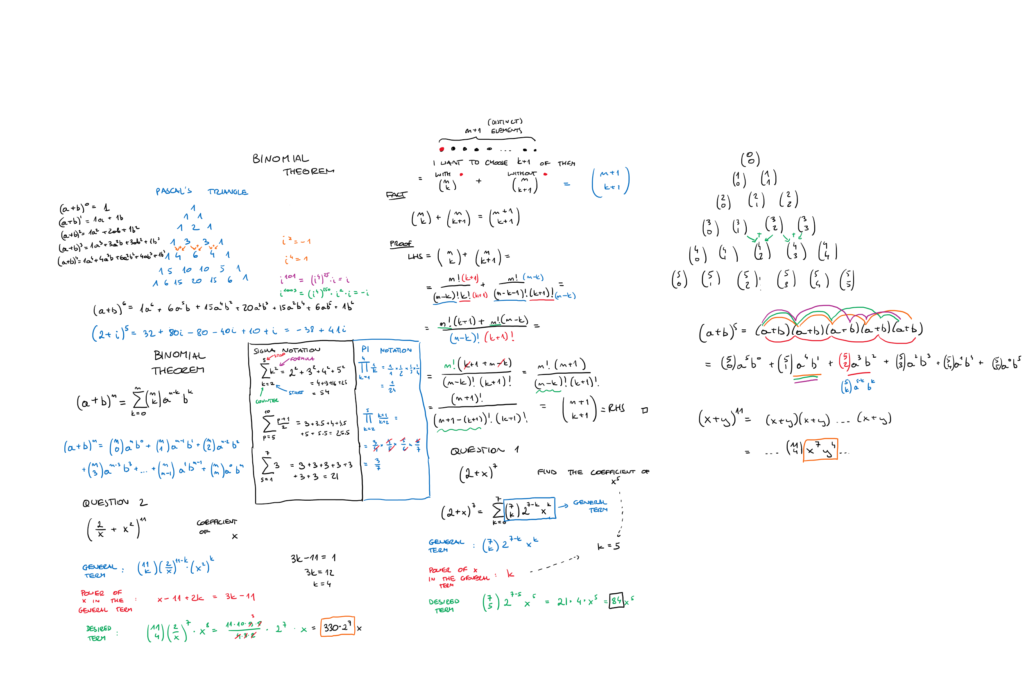 BINOMIAL
THEOREM
PASCAL'S TRIANGLE
(a+b)⁰ = 1
(a+b)¹ = 1a + 1b
(a+b)² = 1a² + 2ab + 1b²
(a+b)³ = 1a³ + 3a²b + 3ab² + 1b³
(a+b)⁴ = 1a⁴ + 4a³b + 6a²b² + 4ab³ + 1b⁴
1
1 1
1 2 1
1 3 3 1
1 4 6 4 1
1 5 10 10 5 1
1 6 15 20 15 6 1
i² = -1
i⁴ = 1
(a+b)⁶ = 1a⁶ + 6a⁵b + 15a⁴b² + 20a³b³ + 15a²b⁴ + 6ab⁵ + 1b⁶
(2+i)⁵ = 32 + 80i - 80 - 40i + 10 + i = -38 + 41i
BINOMIAL
THEOREM
(a+b)ⁿ = ∑ (n k) a^(n-k) b^k
k=0
(a+b)ⁿ = (n 0) aⁿb⁰ + (n 1) aⁿ⁻¹b¹ + (n 2) aⁿ⁻²b²
+ (n 3) aⁿ⁻³b³ + ... + (n n-1) a¹bⁿ⁻¹ + (n n) a⁰bⁿ
SIGMA NOTATION
STOP
FORMULA
∑ k² = 2² + 3² + 4² + 5²
k=2
START
= 54
COUNTER
10
∑ (p-1)/2 = 3 + 2.5 + 4 + 3.5
p=5
+ 5 + 5.5 = 25.5
7
∑ 3 = 3 + 3 + 3 + 3 + 3
+ 3 + 3 = 21
PI NOTATION
QUESTION 2
(2/x + x²)¹¹
COEFFICIENT
OF x
GENERAL
TERM : (11 k) (2/x)^(11-k) · (x²)^k
POWER OF
x IN THE : x - 11 + 2k = 3k - 11
GENERAL TERM
3k - 11 = 1
3k = 12
k = 4
DESIRED
TERM : (11 4) (2/x)⁷ · x⁸ = · 2⁷ · x = 330·2⁷ x
(DISTINCT)
n+1 ELEMENTS
...
I WANT TO CHOOSE k+1 OF THEM
WITH WITHOUT
= (n k) + (n k+1) = (n+1 k+1)
FACT
(n k) + (n k+1) = (n+1 k+1)
PROOF
LHS = (n k) + (n k+1) =
= n!(k+1)/((n-k)!k!(k+1)) + n!(n-k)/((n-k-1)!(k+1)!(n-k))
= (n!(k+1) + n!(n-k))/((n-k)!(k+1)!) =
= n!(k+1+n-k)/((n-k)!(k+1)!) = n!(n+1)/((n-k)!(k+1)!)
= (n+1)!/((n+1-(k+1))!·(k+1)!) = (n+1 k+1) = RHS □
QUESTION 1
(2+x)⁷ FIND THE COEFFICIENT OF
x⁵
(2+x)⁷ = ∑ (7 k) 2^(7-k) x^k → GENERAL TERM
k=0
GENERAL
TERM : (7 k) 2^(7-k) x^k
k = 5
POWER OF x
IN THE GENERAL : k
TERM
DESIRED
TERM (7 5) 2^(7-5) x⁵ = 21·4·x⁵ = 84 x⁵
(0 0)
(1 0) (1 1)
(2 0) (2 1) (2 2)
(3 0) (3 1) (3 2) (3 3)
+ +
(4 0) (4 1) (4 2) (4 3) (4 4)
(5 0) (5 1) (5 2) (5 3) (5 4) (5 5)
(a+b)⁵ = (a+b)(a+b)(a+b)(a+b)(a+b)
= (5 0) a⁵b⁰ + (5 1) a⁴b¹ + (5 2) a³b² + (5 3) a²b³ + (5 4) a¹b⁴ + (5 5) a⁰b⁵
(5 k) a^(5-k) b^k
(x+y)¹¹ = (x+y)(x+y) .... (x+y)
= ... (11 4) x⁷y⁴ ...